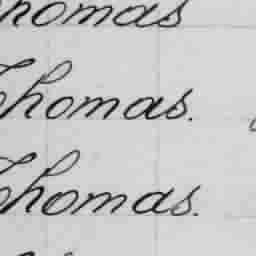 Thomas
Thomas.
Thomas.